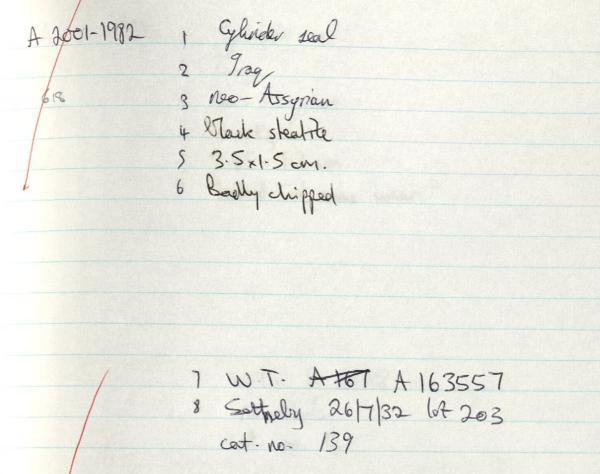 A 2001-1982 1 Cylinder seal
2 Iraq
618 3 neo-Assyrian
4 black steatite
5 3.5x1.5 cm.
6 Badly chipped
7 W.T. A 163557
8 Sotheby 26/7/32 lot 203
cat. no. 139